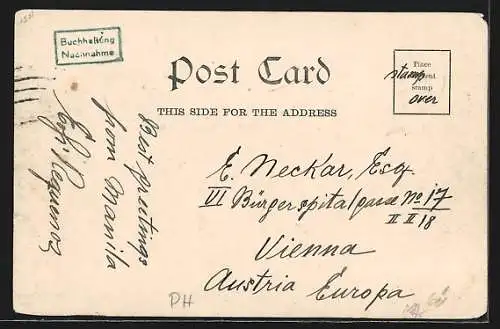 Buchhaltung
Nachnahme
Post Card
THIS SIDE FOR THE ADDRESS
Place
stamp
Stamp
over
Best greetings
from Manila
E. Neckar, Esq.
VI Bürgerspitalgasse No 17
II II 18
Vienna
Austria Europa
PH